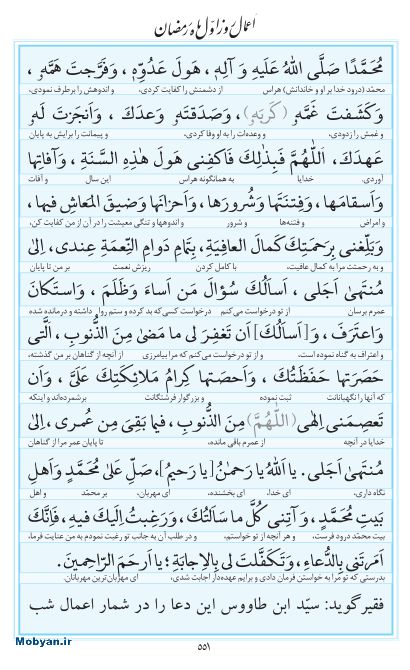 اعمال روز اول ماه رمضان
مُحَمَّدًا صَلَّى اللهُ عَلَيهِ وَ آلِهِ، هَولَ عَدُوِّهِ، وَفَرَّجتَ هَمَّهُ،
محمّد (درود خدا بر او و خاندانش) هراس از دشمنش را کفایت کردی، و اندوهش را برطرف نمودی،
وَكَشَفتَ غَمَّهُ (كَربَهُ)، وَصَدَقتَهُ وَعدَكَ، وَاَنجَزتَ لَهُ
و غمش را زدودی، و وعده‌ات را به او وفا کردی، و پیمانت را برایش به پایان
عَهدَكَ، اَللّٰهُمَّ فَبِذٰلِكَ فَاكفِنى هَولَ هٰذِهِ السَّنَةِ، وَآفاتِها
آوردی. خدایا به همانگونه هراس این سال و آفات
وَاَسقامَها، وَفِتنَتَها وَشُرورَها، وَاَحزانَها وَضيقَ المَعاشِ فيها،
و امراض و فتنه‌ها و شرور و اندوهها و تنگی معیشت را در آن از من کفایت کن،
وَبَلِّغنى بِرَحمَتِكَ كَمالَ العافِيَةِ، بِتَمامِ دَوامِ النِّعمَةِ عِندى، اِلىٰ
و به رحمتت مرا به کمال عافیت، با کامل کردن ریزش نعمت بر من تا پایان
مُنتَهىٰ اَجَلى، اَسأَلُكَ سُؤالَ مَن اَساءَ وَظَلَمَ، وَاستَكانَ
عمرم برسان از تو درخواست می‌کنم درخواست کسی که بد کرده و ستم روا داشته و درمانده شده
وَاعتَرَفَ، وَ[اَسأَلُكَ] اَن تَغفِرَ لى ما مَضىٰ مِنَ الذُّنوبِ، الَّتى
و اعتراف به گناه نموده است، و از تو درخواست می‌کنم که مرا بیامرزی از آنچه از گناهان بر من گذشته،
حَصَرَتها حَفَظَتُكَ، وَاَحصَتها كِرامُ مَلائِكَتِكَ عَلَىَّ، وَاَن
که آنها را نگهبانانت ثبت نموده و بزرگوار فرشتگانت برشمرده‌اند و اینکه
تَعصِمَنى اِلٰهى (اَللّٰهُمَّ) مِنَ الذُّنوبِ، فيما بَقِىَ مِن عُمرى، اِلىٰ
خدایا در آنچه از عمرم باقی مانده، تا پایان عمر مرا از گناهان
مُنتَهىٰ اَجَلى. يا اَللهُ يا رَحمٰنُ [يا رَحيمُ]، صَلِّ عَلىٰ مُحَمَّدٍ وَاَهلِ
نگاه داری، ای خدا، ای بخشنده، ای مهربان، بر محمّد و اهل
بَيتِ مُحَمَّدٍ، وَ آتِنى كُلَّ ما سَأَلتُكَ، وَرَغِبتُ اِلَيكَ فيهِ، فَاِنَّكَ
بیت محمّد درود فرست، و هر آنچه از تو خواستم، و در طلب آن به جانب تو رغبت نمودم به من عنایت فرما،
اَمَرتَنى بِالدُّعاءِ، وَتَكَفَّلتَ لى بِالاِجابَةِ؛ يا اَرحَمَ الرّاحِمينَ.
بدرستی که تو مرا به خواستن فرمان دادی و برایم عهده‌دار اجابت شدی، ای مهربان‌ترین مهربانان.
فقیر گوید: سیّد ابن طاووس این دعا را در شمار اعمال شب
Mobyan.ir
۵۵۱